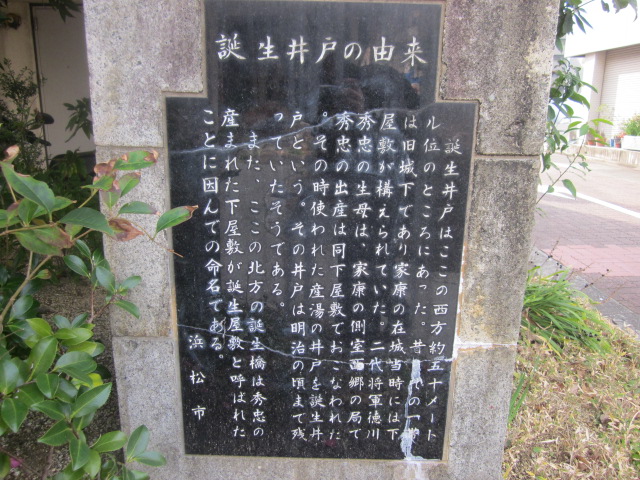 誕生井戸の由来
誕生井戸はここの西方約五十メート
ル位のところにあった。昔この一帯
は旧城下であり家康の在城当時には下
屋敷が構えられていた。二代将軍徳川
秀忠の生母は、家康の側室西郷の局で
秀忠の出産は同下屋敷でおこなわれた
。その時使われた産湯の井戸を誕生井
戸という。その井戸は明治の頃まで残
っていたそうである。
また、ここの北方の誕生橋は秀忠の
産まれた下屋敷が誕生屋敷と呼ばれた
ことに因んでの命名である。
浜松市